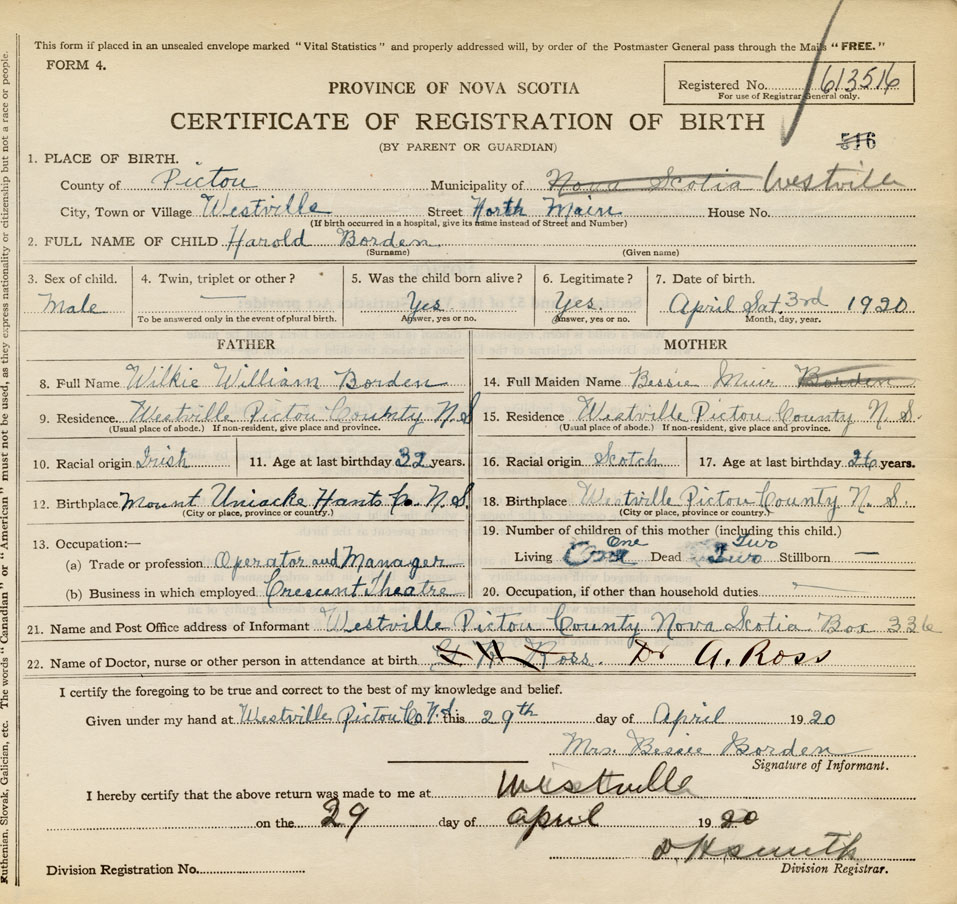 This form if placed in an unsealed envelope marked "Vital Statistics" and properly addressed will, by order of the Postmaster General pass through the Mails "FREE."
FORM 4.
Registered No. 613516
For use of Registrar General only.
PROVINCE OF NOVA SCOTIA
CERTIFICATE OF REGISTRATION OF BIRTH
(BY PARENT OR GUARDIAN)
516
1. PLACE OF BIRTH.
County of Pictou Municipality of Nova Scotia Westville
City, Town or Village Westville Street North Main House No.
(If birth occurred in a hospital, give its name instead of Street and Number)
2. FULL NAME OF CHILD Harold Borden
(Surname) (Given name)
3. Sex of child. 4. Twin, triplet or other? 5. Was the child born alive? 6. Legitimate? 7. Date of birth.
Male — Yes Yes. April Sat. 3rd 1920
To be answered only in the event of plural birth. Answer, yes or no. Answer, yes or no. Month, day, year.
FATHER MOTHER
8. Full Name Wilkie William Borden
9. Residence Westville Pictou County N S
(Usual place of abode.) If non-resident, give place and province.
10. Racial origin Irish 11. Age at last birthday 32 years.
12. Birthplace Mount Uniacke Hants Co. N.S.
(City or place, province or country.)
13. Occupation:—
(a) Trade or profession Operator and Manager
(b) Business in which employed Crescent Theatre
14. Full Maiden Name Bessie Muir Borden
15. Residence Westville Pictou County N. S.
(Usual place of abode.) If non-resident, give place and province.
16. Racial origin Scotch 17. Age at last birthday 26 years.
18. Birthplace Westville Pictou County N. S.
(City or place, province or country.)
19. Number of children of this mother (including this child.)
One Two
Living One Dead Two Stillborn —
20. Occupation, if other than household duties
21. Name and Post Office address of Informant Westville Pictou County Nova Scotia Box 336
22. Name of Doctor, nurse or other person in attendance at birth Ross. Dr A. Ross
I certify the foregoing to be true and correct to the best of my knowledge and belief.
Given under my hand at Westville Pictou Co N.S. this 29th day of April 1920
Mrs. Bessie Borden
Signature of Informant.
I hereby certify that the above return was made to me at Westville
on the 29 day of April 1920
D H Smith
Division Registration No. Division Registrar.
Ruthenian, Slovak, Galician, etc. The words "Canadian" or "American" must not be used, as they express nationality or citizenship but not a race or people.